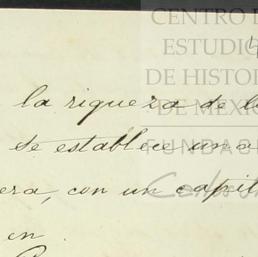 CENTRO D
ESTUDIO
DE HISTO
DE MÉXIC
FUNDAC
la riqueza de l
se establece una
era, con un capit
en